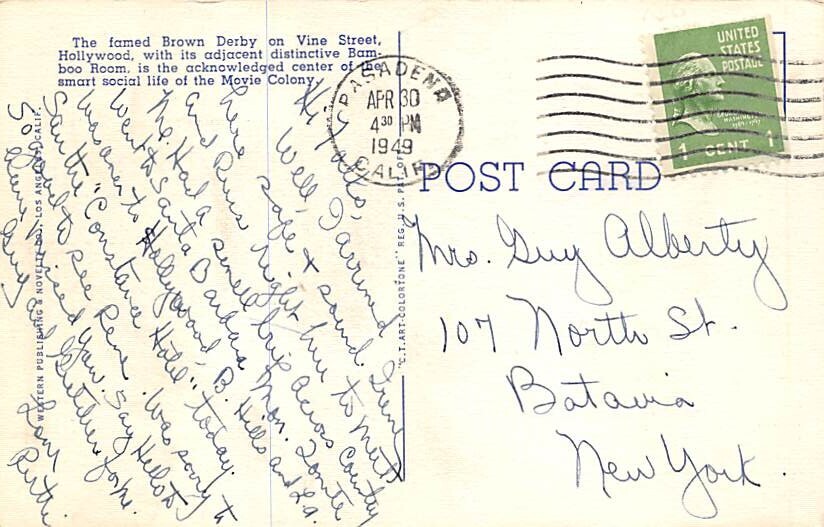 The famed Brown Derby on Vine Street,
Hollywood, with its adjacent distinctive Bam-
boo Room, is the acknowledged center of the
smart social life of the Movie Colony.
PASADENA
APR 30
4 30 PM
1949
CALIF.
UNITED
STATES
POSTAGE
GEORGE
WASHINGTON
1 CENT 1
POST CARD
Mrs. Guy Alberty
107 North St.
Batavia
New York.
Hi Folks,
Well I arrived
safe & sound. Irene
here right here to meet
and Rena
me. Had a swell trip across country
Went to Santa Barbara Mon. Tonite
was over to Hollywood, B. Hills and L.a.
Saw the "Constance Hotel" today.
So good to see Rena. Was sorry to
have missed you. Say Hello to
Guy and Gretchen for me.
Love
Ruth.
WESTERN PUBLISHING & NOVELTY CO., LOS ANGELES, CALIF.
"C.T. ART-COLORTONE" REG. U.S. PAT. OFF.